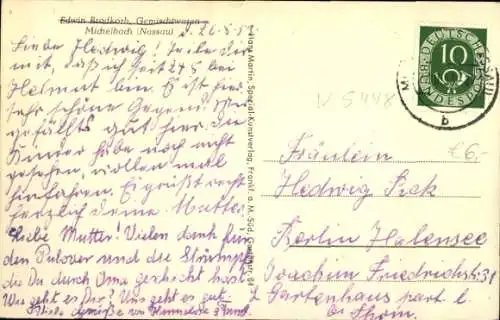 Edwin Brodkorb, Gemischwaren
Michelbach (Nassau)
d. 26-5-51
Liebe Hedwig! Teile dir
mit, daß ich seit 24.5 bei
Helmut bin. Es ist hier
sehr schöne Gegend. Mir
gefällts gut hier. Die
Kinder habe noch nicht
gesehen, wollen mal
hinfahren. Es grüßt recht
herzlich deine Mutter.
Liebe Mutter! Vielen dank für
den Pulover und die Strümpfe
die Du durch Oma geschickt hast.
Wie geht es Dir? Uns geht es gut
Viele Grüße von
Hans Martin, Spezial-Kunstverlag, Frankf. a. M.-Süd
DEUTSCHE BUNDESPOST
10
b
V 5448
€ 6.-
Fräulein
Hedwig
Berlin Halensee
Joachim Friedrichstr 31
Gartenhaus part l.